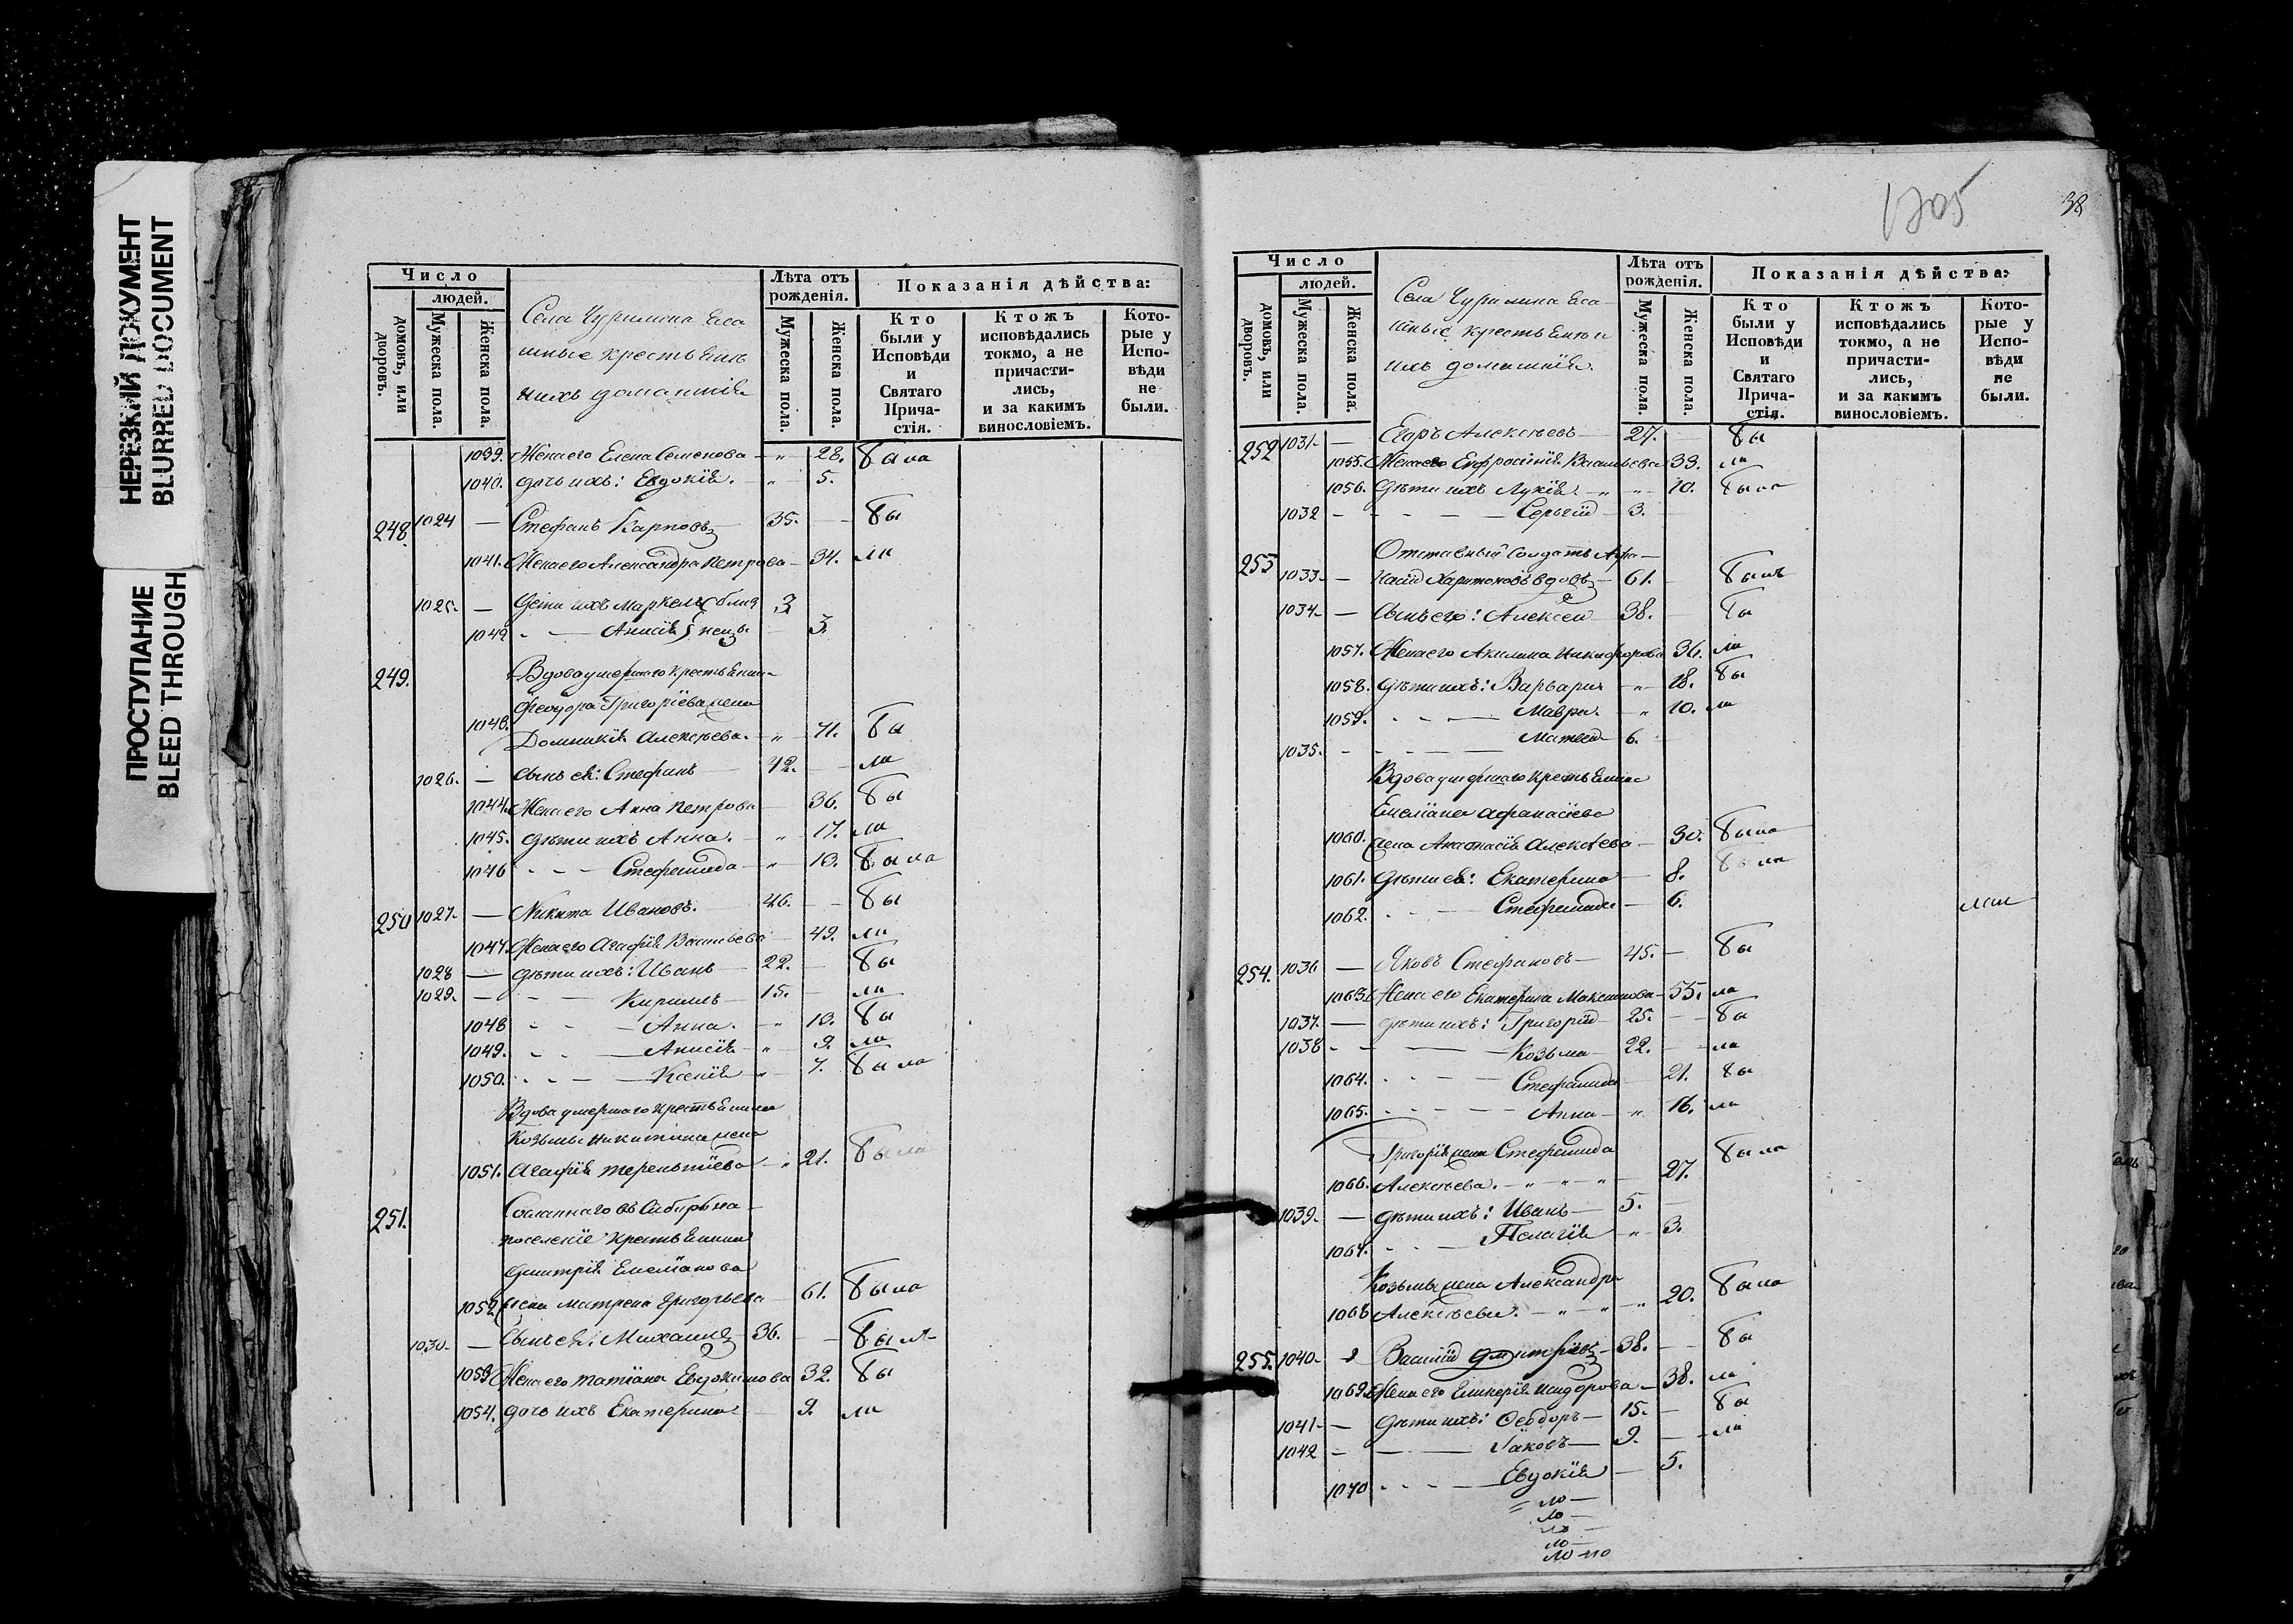 НЕРЕЗКИЙ ДОКУМЕНТ
BLURRED DOCUMENT
ПРОСТУПАНИЕ
BLEED THROUGH
Число
людей.
домовъ, или дворовъ.
Мужеска пола.
Женска пола.
Села Чурилина Яса
шные крестьяне
и ихъ домашнія
Лѣта отъ рожденія.
Мужеска пола.
Женска пола.
Показанія дѣйства:
Кто были у Исповѣди и Святаго Прича-стія.
Ктожъ исповѣдались токмо, а не причасти-лись, и за какимъ винословіемъ.
Кото-рые у Испо-вѣди не были.
1039. Жена его Елена Семенова — „ 28. была
1040. дочь ихъ: Евдокія. — „ 5.
248 1024 — Стефанъ Карповъ 35. — бы
1041. Жена его Александра Петрова — 34. ли
1025. — Дѣти ихъ Маркелъ близ 3
1042 „ — Анисія нецы 3.
249. Вдова умершаго крестьянина
Феодора Григоріева жена
1043. Домникія Алексѣева. — „ 71. бы
1026. — Сынъ ея: Стефанъ 42. — ли
1044. Жена его Анна Петрова 36. бы
1045. дѣти ихъ Анна. „ 17. ли
1046 - - - Стефанида „ 10. была
250 1027. — Никита Ивановъ. 46. — бы
1047. Жена его Агафія Васильева 49. ли
1028 — дѣти ихъ: Иванъ 22. — бы
1029. — - — Кириллъ 15. — ли
1048 - - — Анна. — „ 10. бы
1049. - - — Анисія „ 9. ли
1050. - - — Ксенія „ 7. была
Вдова умершаго крестьянина
Козьмы Никитина жена
1051. Агафія Терентіева — „ 21. была
251. Сосланнаго въ Сибирь на
поселеніе крестьянина
Димитрія Емеліанова
1052. жена Матрена Григорьева 61. была
1030. — Сынъ ея: Михаилъ 36. — былъ
1053 Жена его Татіана Евдокимова 32. бы
1054. дочь ихъ Екатерина 9. ли
1205
38
Число
людей.
домовъ, или дворовъ.
Мужеска пола.
Женска пола.
Села Чурилина Яса
шные крестьяне и
ихъ домашнія.
Лѣта отъ рожденія.
Мужеска пола.
Женска пола.
Показанія дѣйства:
Кто были у Исповѣди и Святаго Прича-стія.
Ктожъ исповѣдались токмо, а не причасти-лись, и за какимъ винословіемъ.
Кото-рые у Испо-вѣди не были.
252 1031. — Егоръ Алексѣевъ 27. — бы
1055. Жена его Евфросинія Васильева 33. ли
1056. дѣти ихъ Лукія. „ „ 10. была
1032 — - — — Сергій 3.
253 Отставный солдатъ Афа—
1033. — насій Харитоновъ вдовъ 61. былъ
1034. — Сынъ его: Алексѣй 38. бы
1057. Жена его Акилина Никифорова 36. ли
1058. дѣти ихъ: Варвара — „ 18. бы
1059. - - — Мавра. — „ 10. ли
1035. - - — — Матвей 6.
Вдова умершаго крестьянина
Емеліана Афанасіева
1060. жена Анастасія Алексѣева — 30. была
1061. дѣти ея: Екатерина — 8. была
1062. - - — Стефанида — 6.
254. 1036 — Яковъ Стефановъ 45. — бы
1063. Жена его Екатерина Максимова 55. ли
1037. — дѣти ихъ: Григорій 25. — бы
1038 - - — — Козьма 22. — ли
1064. - - - — Стефанида 21. бы
1065. - - — — Анна — „ 16. ли
Григорія жена Стефанида
1066. Алексѣева. — „ — „ — „ — 27. была
1039. — дѣти ихъ: Иванъ 5. —
1067. - - — Пелагія „ 3.
Козьмы жена Александра
1068 Алексѣева. — „ — „ — „ 20. была
255. 1040. Василій Дмитріевъ 38. — бы
1069. Жена его Гликерія Исидорова 38. ли
1041. — дѣти ихъ: Феодоръ 15. — бы
1042 - — — Іаковъ 9. — ли
1070 - - - — Евдокія — 5.